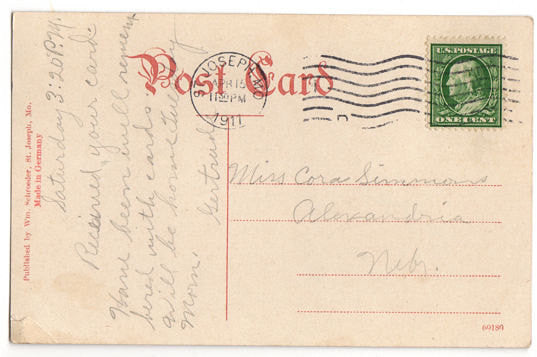 Post Card
ST. JOSEPH, MO.
APR 15
11 30 PM
1911
U.S. POSTAGE
ONE CENT
Saturday 3:20 P.M.
Received your card.
Have been well remem
bered with cards.
Will be home Tuesday
Morn.
Gertrude
Miss Cora Simmons
Alexandria
Nebr.
Published by Wm. Schroeder, St. Joseph, Mo.
Made in Germany
60180